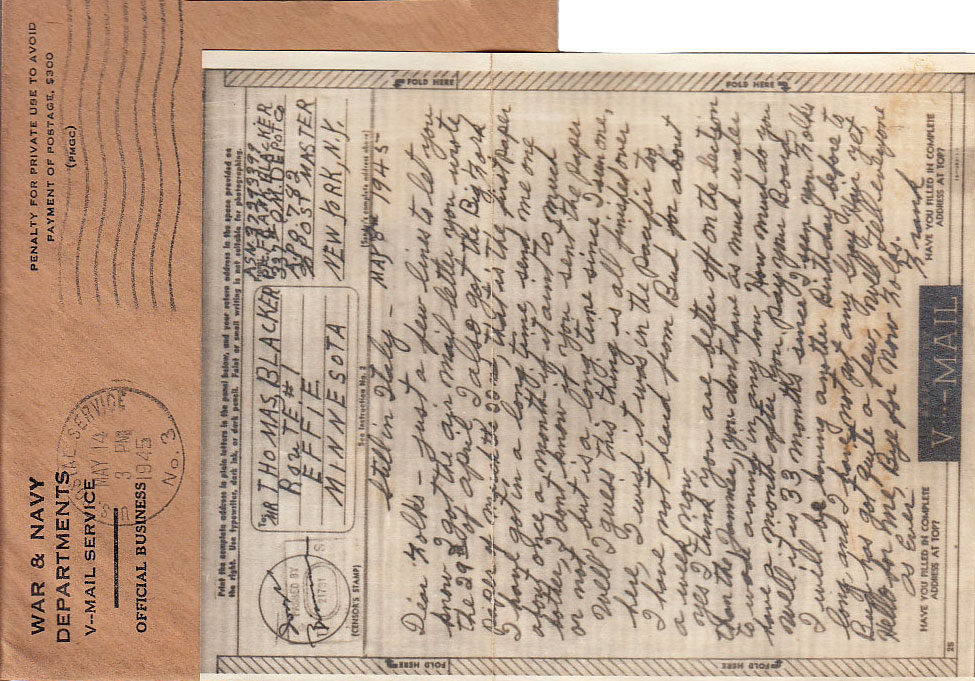 PENALTY FOR PRIVATE USE TO AVOID
PAYMENT OF POSTAGE, $300
(PMGC)
WAR & NAVY
DEPARTMENTS
V--MAIL SERVICE
OFFICIAL BUSINESS
POSTAL SERVICE
MAY 14
3 PM
1945
No. 3
FOLD HERE
FOLD HERE
Print the complete address in plain letters in the panel below, and your return address in the space provided on
the right. Use typewriter, dark ink, or dark pencil. Faint or small writing is not suitable for photographing.
To: MR THOMAS BLACKER
ROUTE #1
EFFIE
MINNESOTA
BLACKER
APO 782
% POST MASTER
NEW YORK, N.Y.
MAY 8 1945
(Sender's complete address above)
PASSED BY
(CENSOR'S STAMP)
See Instruction No. 2
Still in Italy –
Dear Folks – just a few lines to let you
know I got the air mail letter you wrote
the 29 of april I also got the Big Fork
that is the first paper
I havnt got in a long time send me one
about once a month if it aint to much
bother, I dont know if you sent the paper
or not but it is a long time since I seen one,
Well I guess this thing is all finished over
here I wish it was in the Pacific to
I have not heard from Bud for about
a week now.
yes I think you are better off on the location
than the you dont have as much water
to work around in any how. How much do you
have a month after you pay your Board.
Well it is 33 months since I seen you Folks
I will be having another Birthday before to
long and I have not any boy your yet,
Buff has got quite a few Well Tell everyone
Hello for me, Bye for now Folks.
as Ever
Frank
HAVE YOU FILLED IN COMPLETE
ADDRESS AT TOP?
V···-MAIL
HAVE YOU FILLED IN COMPLETE
ADDRESS AT TOP?
FOLD HERE
FOLD HERE